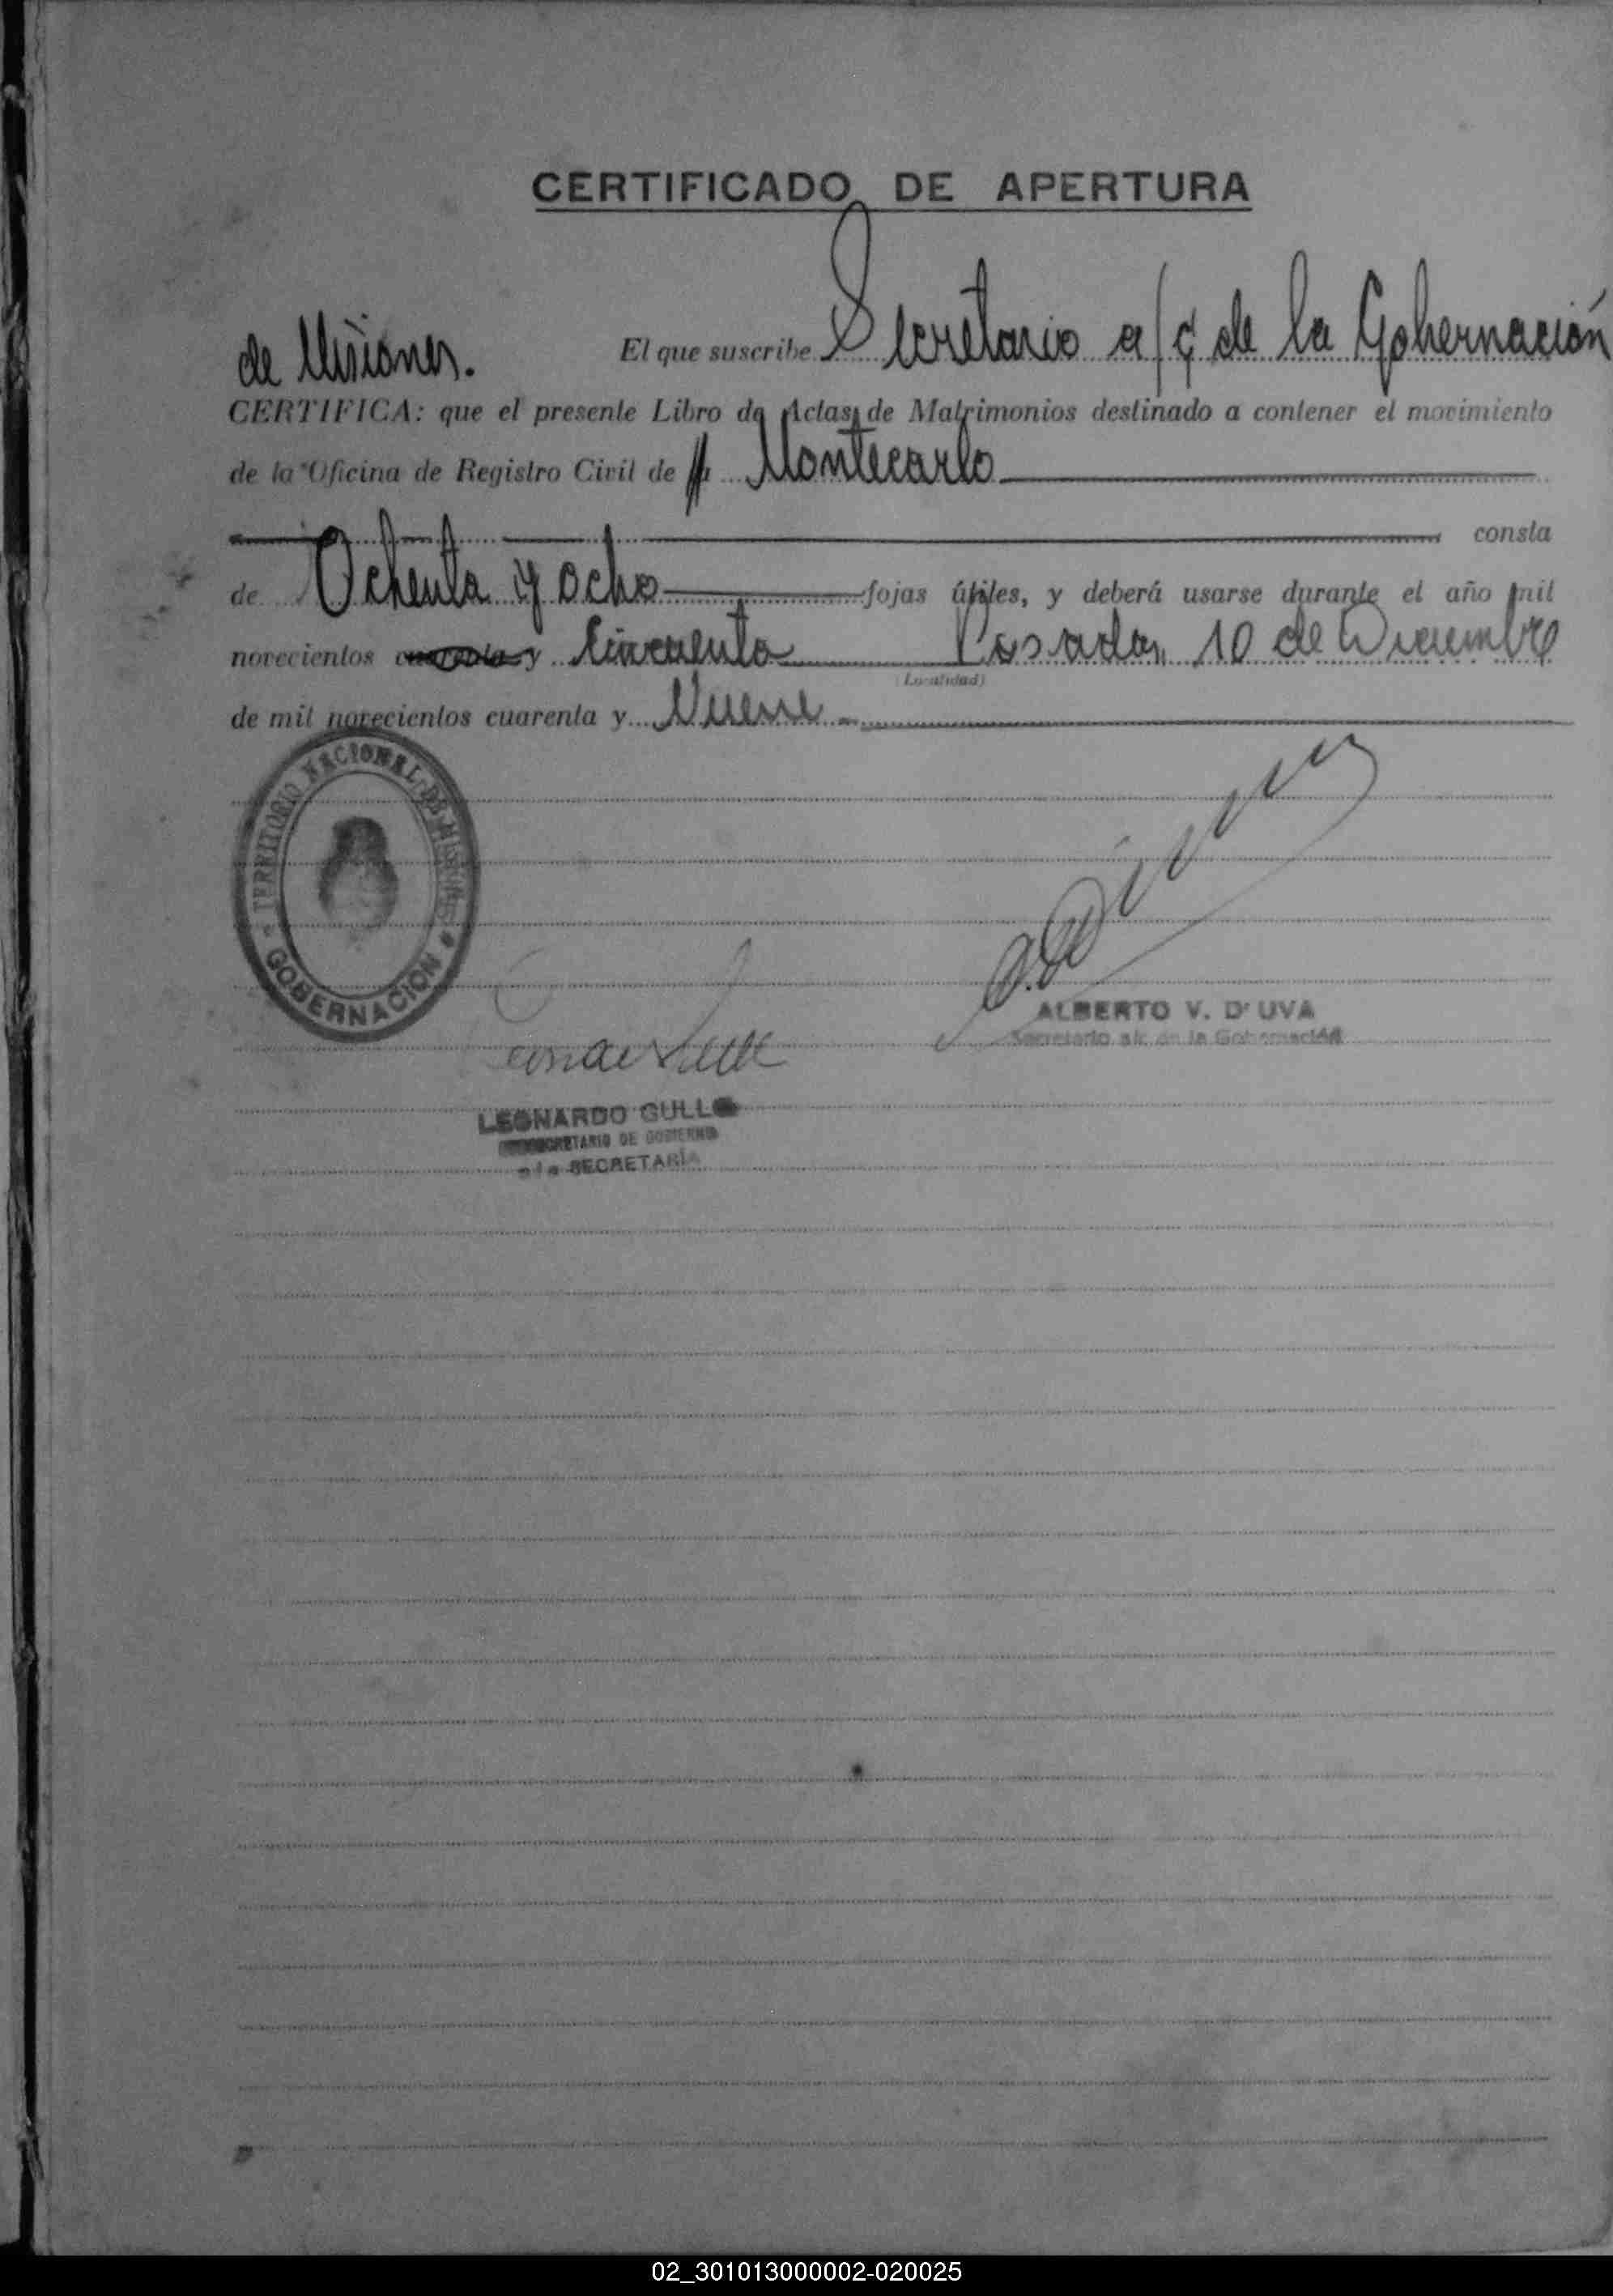 CERTIFICADO DE APERTURA
El que suscribe Secretario a/c de la Gobernación
de Misiones.
CERTIFICA: que el presente Libro de Actas de Matrimonios destinado a contener el movimiento
de la Oficina de Registro Civil de Montecarlo
consta
de Ochenta y ocho fojas útiles, y deberá usarse durante el año mil
novecientos cuarenta y Cincuenta Posadas, 10 de Diciembre
(Localidad)
de mil novecientos cuarenta y Nueve
TERRITORIO NACIONAL DE MISIONES
GOBERNACION
ALBERTO V. D'UVA
Secretario a/c de la Gobernación
LEONARDO GULLO
SECRETARIO DE GOBIERNO
a/c SECRETARÍA
02_301013000002-020025